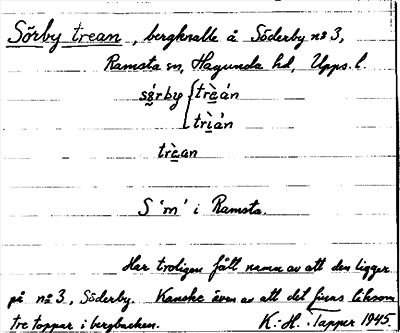 Sörby trean, bergknalle å Söderby nº 3,
Ramsta sn, Hagunda hd, Upps. l.
sö́rby { trèán
trìán
trèan
S 'm' i Ramsta.
Har troligen fått namn av att den ligger
på nº 3, Söderby. Kanske även av att det finns liksom
tre toppar i bergbacken. K.-H. Tapper 1945.